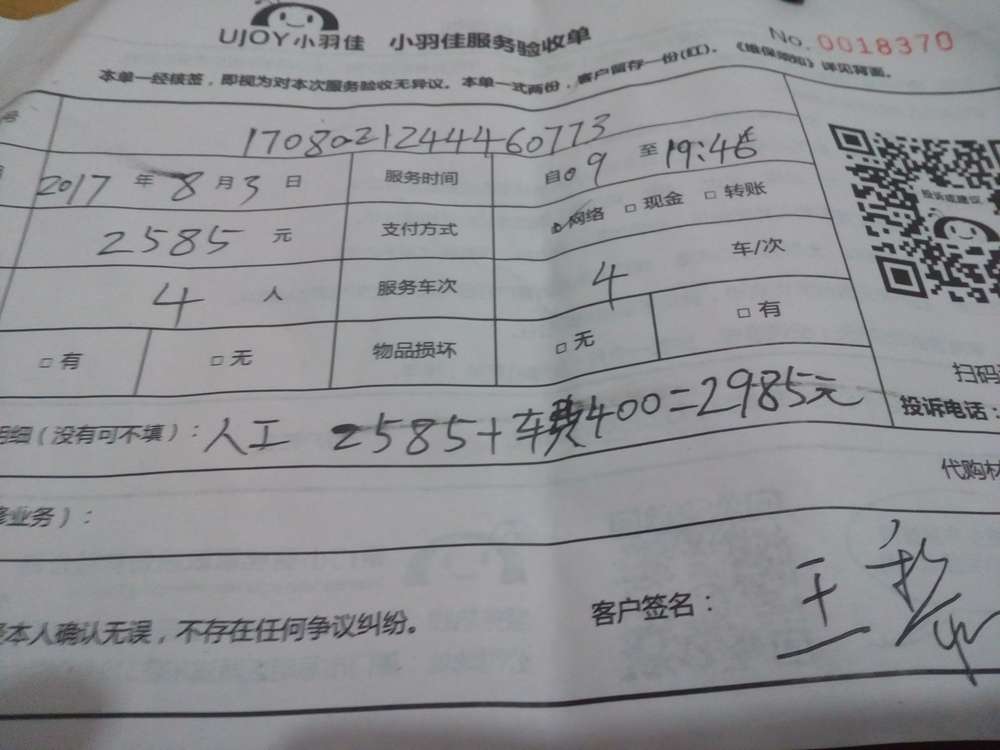 UJOY小羽佳 小羽佳服务验收单 No. 0018370
本单一经核签，即视为对本次服务验收无异议。本单一式两份，客户留存一份(红)。《维保须知》详见背面。
号 170802124446 0773
2017 年 8 月 3 日 服务时间 自09 至 19:46
投诉或建议
2585 元 支付方式 网络 □ 现金 □ 转账
4 人 服务车次 4 车/次
□ 有 □ 无 物品损坏 □ 无 □ 有
扫码
明细（没有可不填）： 人工 2585+车费400=2985元 投诉电话：
代购材
业务）：
本人确认无误，不存在任何争议纠纷。 客户签名： 王